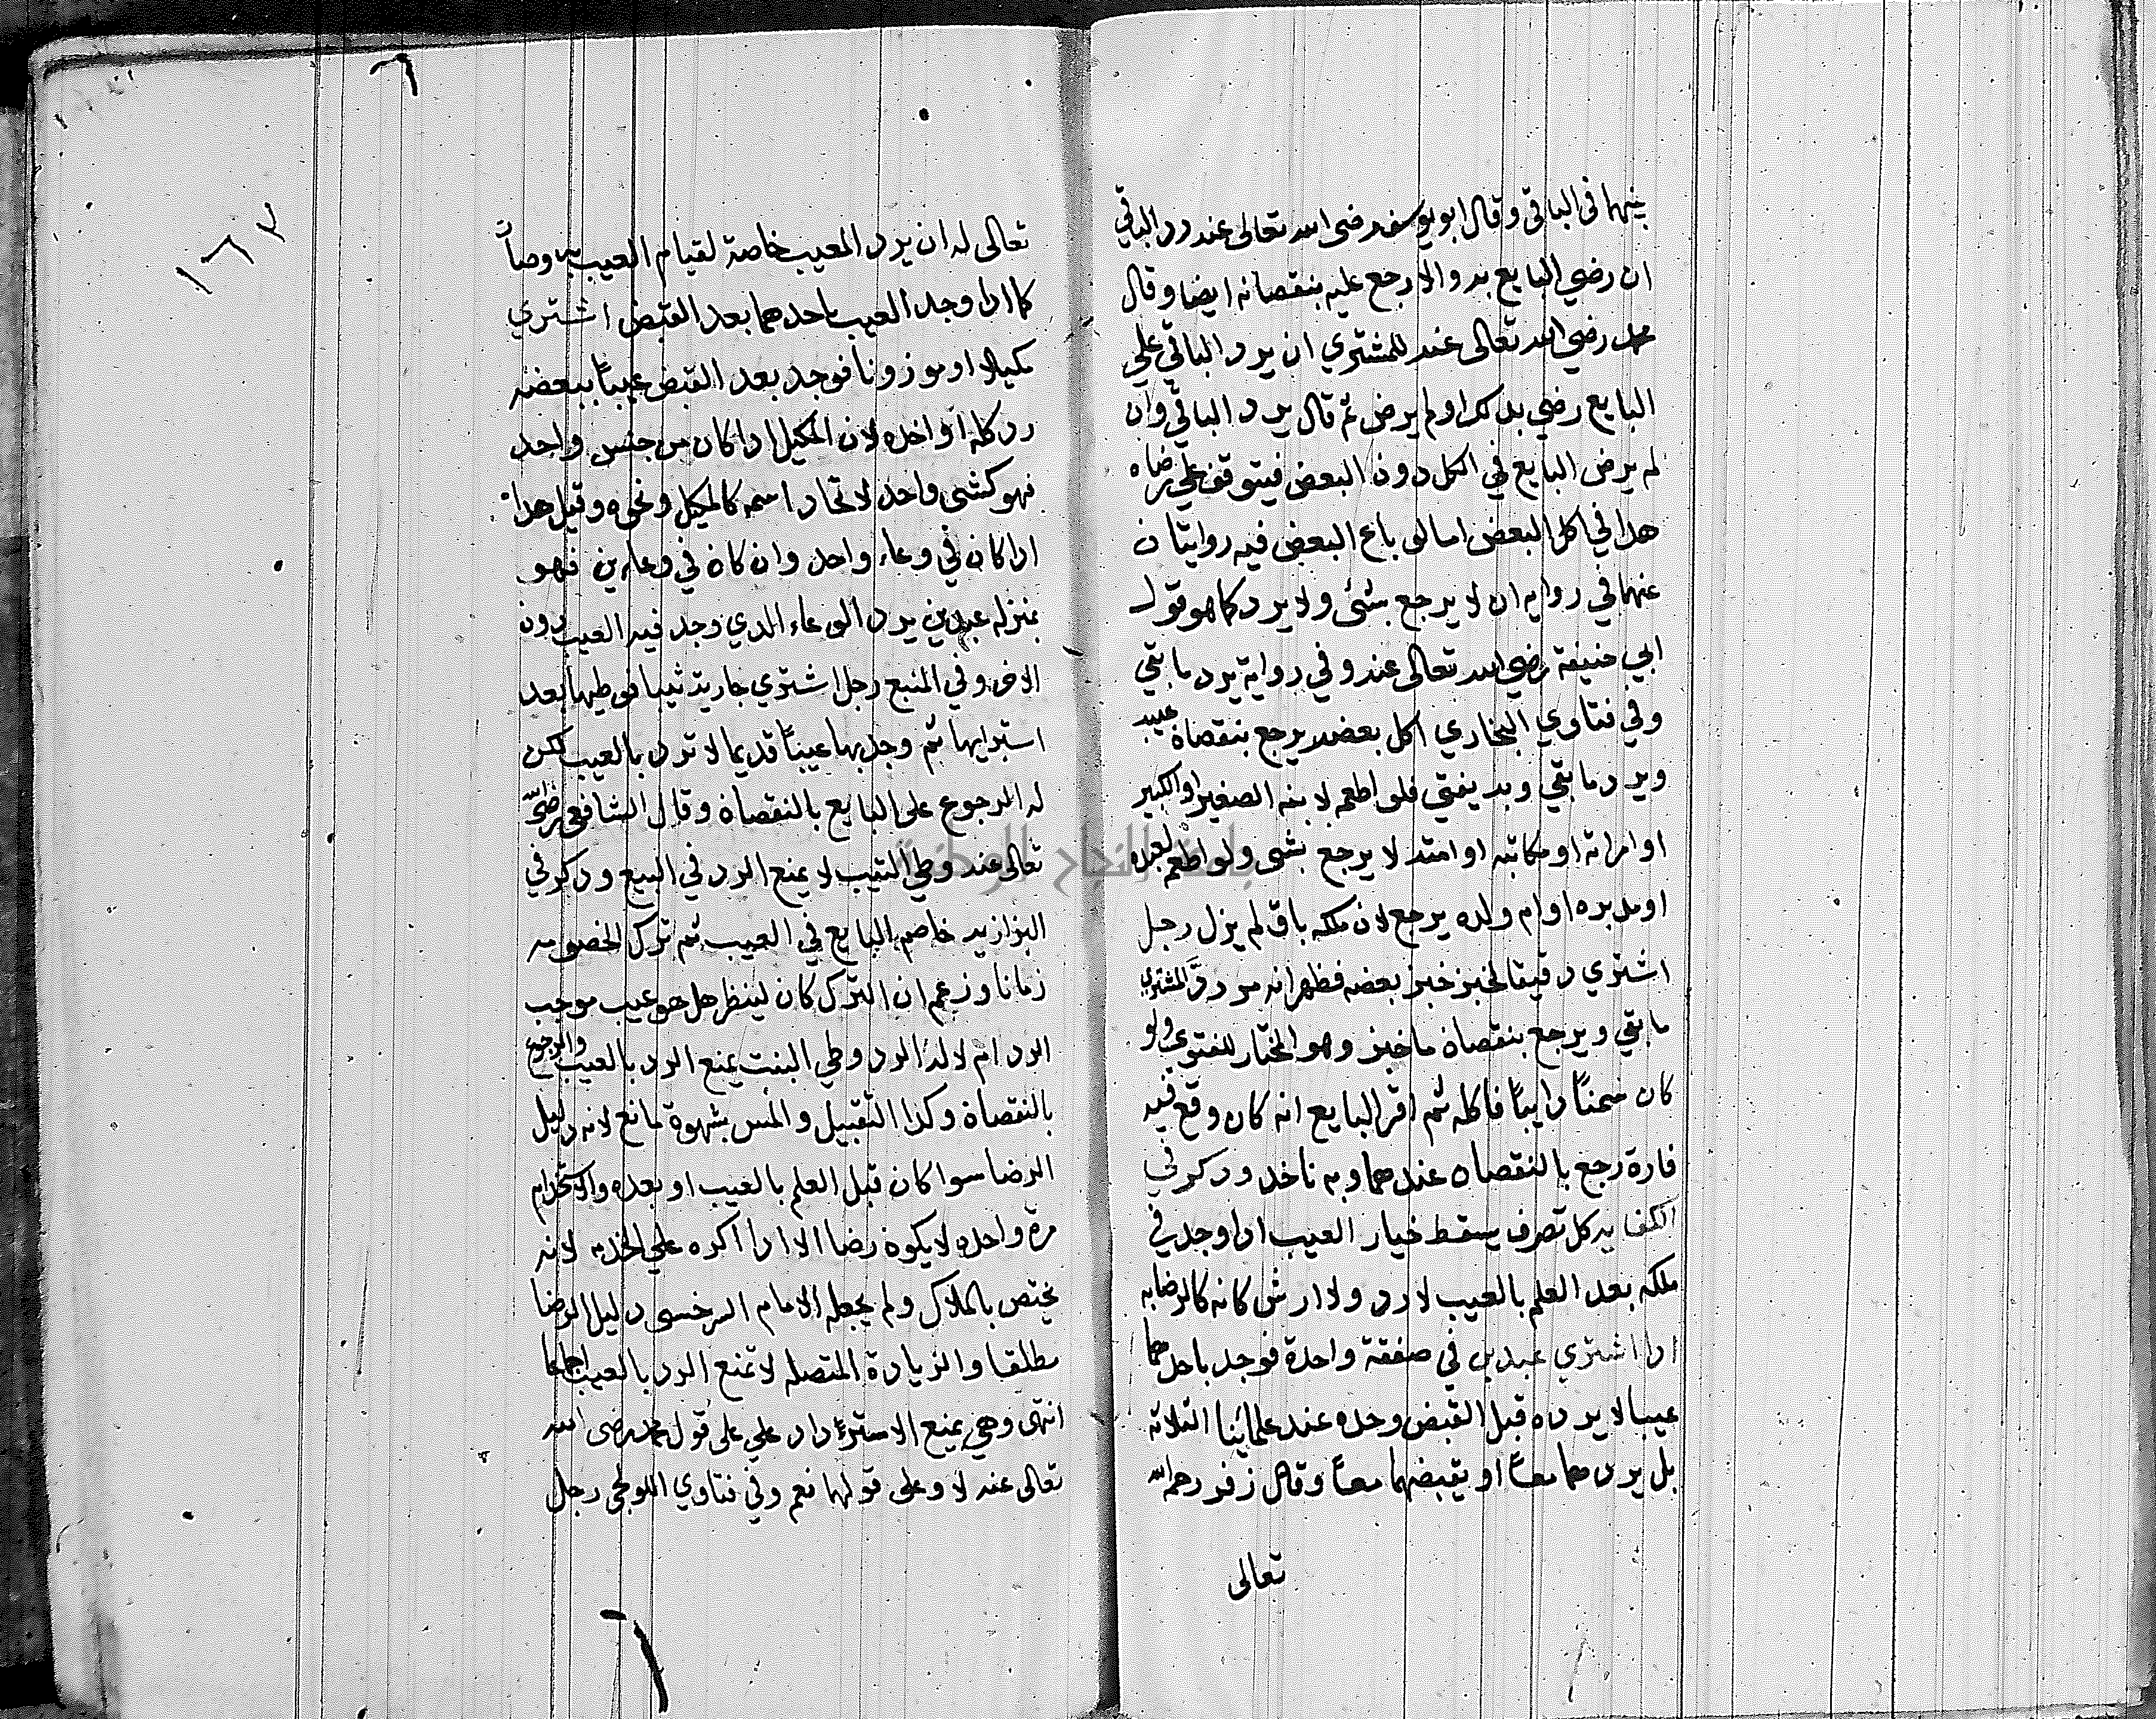 بينهما في الباقي وقال ابو يوسف رضى الله تعالى عنه رد الباقي
ان رضي البايع به والا رجع عليه بنقصانه ايضا وقال
محمد رضي الله تعالى عنه للمشتري ان يرد الباقي علي
البايع رضي بدلك او لم يرض ثم قال يرد الباقي وان
لم يرض البايع في الكل دون البعض فيتوقف علي رضاه
هدا في اكل البعض اما لو باع البعض فيه روايتان
عنهما في رواية ان لا يرجع بشئ ولا يرد كما هو قول
ابي حنيفة رضي الله تعالى عنه وفي رواية يرد ما بقي
وفي فتاوي البخاري اكل بعضه يرجع بنقصان عيبه
ويرد ما بقي وبه يفتي فلو اطعم لابنه الصغير او الكبير
او امراته او مكاتبه او امته لا يرجع بشى ولو اطعم لعبده
او مدبره او ام ولده يرجع لان ملكه باق لم يزل رجل
اشتري دقيقا لخبز خبز بعضه فظهر انه مر رد المشتري
ما بقي ويرجع بنقصان ما خبز وهو المختار للفتوي ولو
كان سمنا دايبا فاكله ثم اقر البايع انه كان وقع فيه
فارة رجع بالنقصان عندهما وبه ناخد ودكر في
الكفاية كل تصرف يسقط خيار العيب ادا وجد في
ملكه بعد العلم بالعيب لا رد ولا ارش كانه كالرضا به
ادا اشتري عبدين في صفقة واحدة فوجد باحدهما
عيبا لا يرده قبل القبض وحده عند علمائنا الثلاثة
بل يردهما معا او يقبضهما معا وقال زفر رحمه الله
تعالى
١٦٣
تعالى له ان يرد المعيب خاصة لقيام العيب به وصار
كما ادا وجد العيب باحدهما بعد القبض اشتري
مكيلا او موزونا فوجد بعد القبض عيبا ببعضه
رد كله او اخده لان المكيل ادا كان من جنس واحد
فهو كشى واحد لاتحاد اسمه كالمكيل ونحوه وقيل هدا
ادا كان في وعاء واحد وان كان في وعاءين فهو
بمنزله عبدين يرد الوعاء الدي وجد فيه العيب دون
الاخر وفي المنبع رجل اشتري جارية ثيبا فوطيها بعد
استبرايها ثم وجد بها عيبا قديما لا ترد بالعيب لكن
له الرجوع على البايع بالنقصان وقال الشافعى رضى الله
تعالى عنه وطي الثيب لا يمنع الرد في البيع ودكر في
البزازيه خاصم البايع في العيب ثم ترك الخصومه
زمانا وزعم ان الترك كان لينظر هل هو عيب موجب
الرد ام لا له الرد وطي البنت يمنع الرد بالعيب والرجوع
بالنقصان وكدا التقبيل والمس بشهوة مانع لانه دليل
الرضا سوا كان قبل العلم بالعيب او بعده والاستخدام
مرة واحده لا يكون رضا الا ادا اكره علي الخدمه لانه
يختص بالملاك ولم يجعله الامام السرخسى دليل الرضا
مطلقا والزيادة المتصله لا تمنع الرد بالعيب اجماعا
انتهى وهي يمنع الاسترداد علي على قول محمد رضى الله
تعالى عنه لا وعلى قولهما نعم وفي فتاوي اللولجي رجل
جامعة النجاح الوطنية